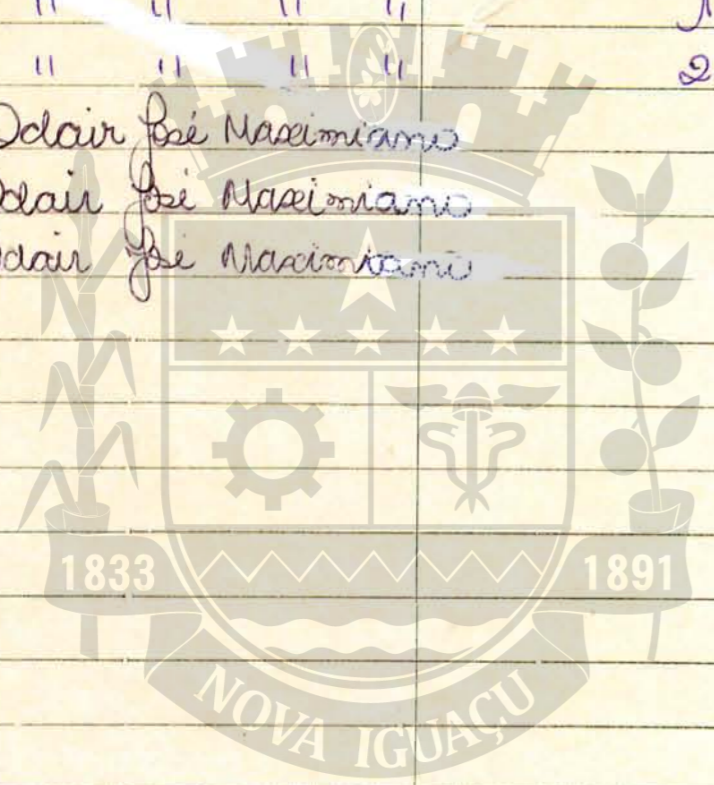 " " " "
" " " " 2
Odair José Maximiano
Odair José Maximiano
Odair José Maximiano
1833 1891
NOVA IGUAÇU